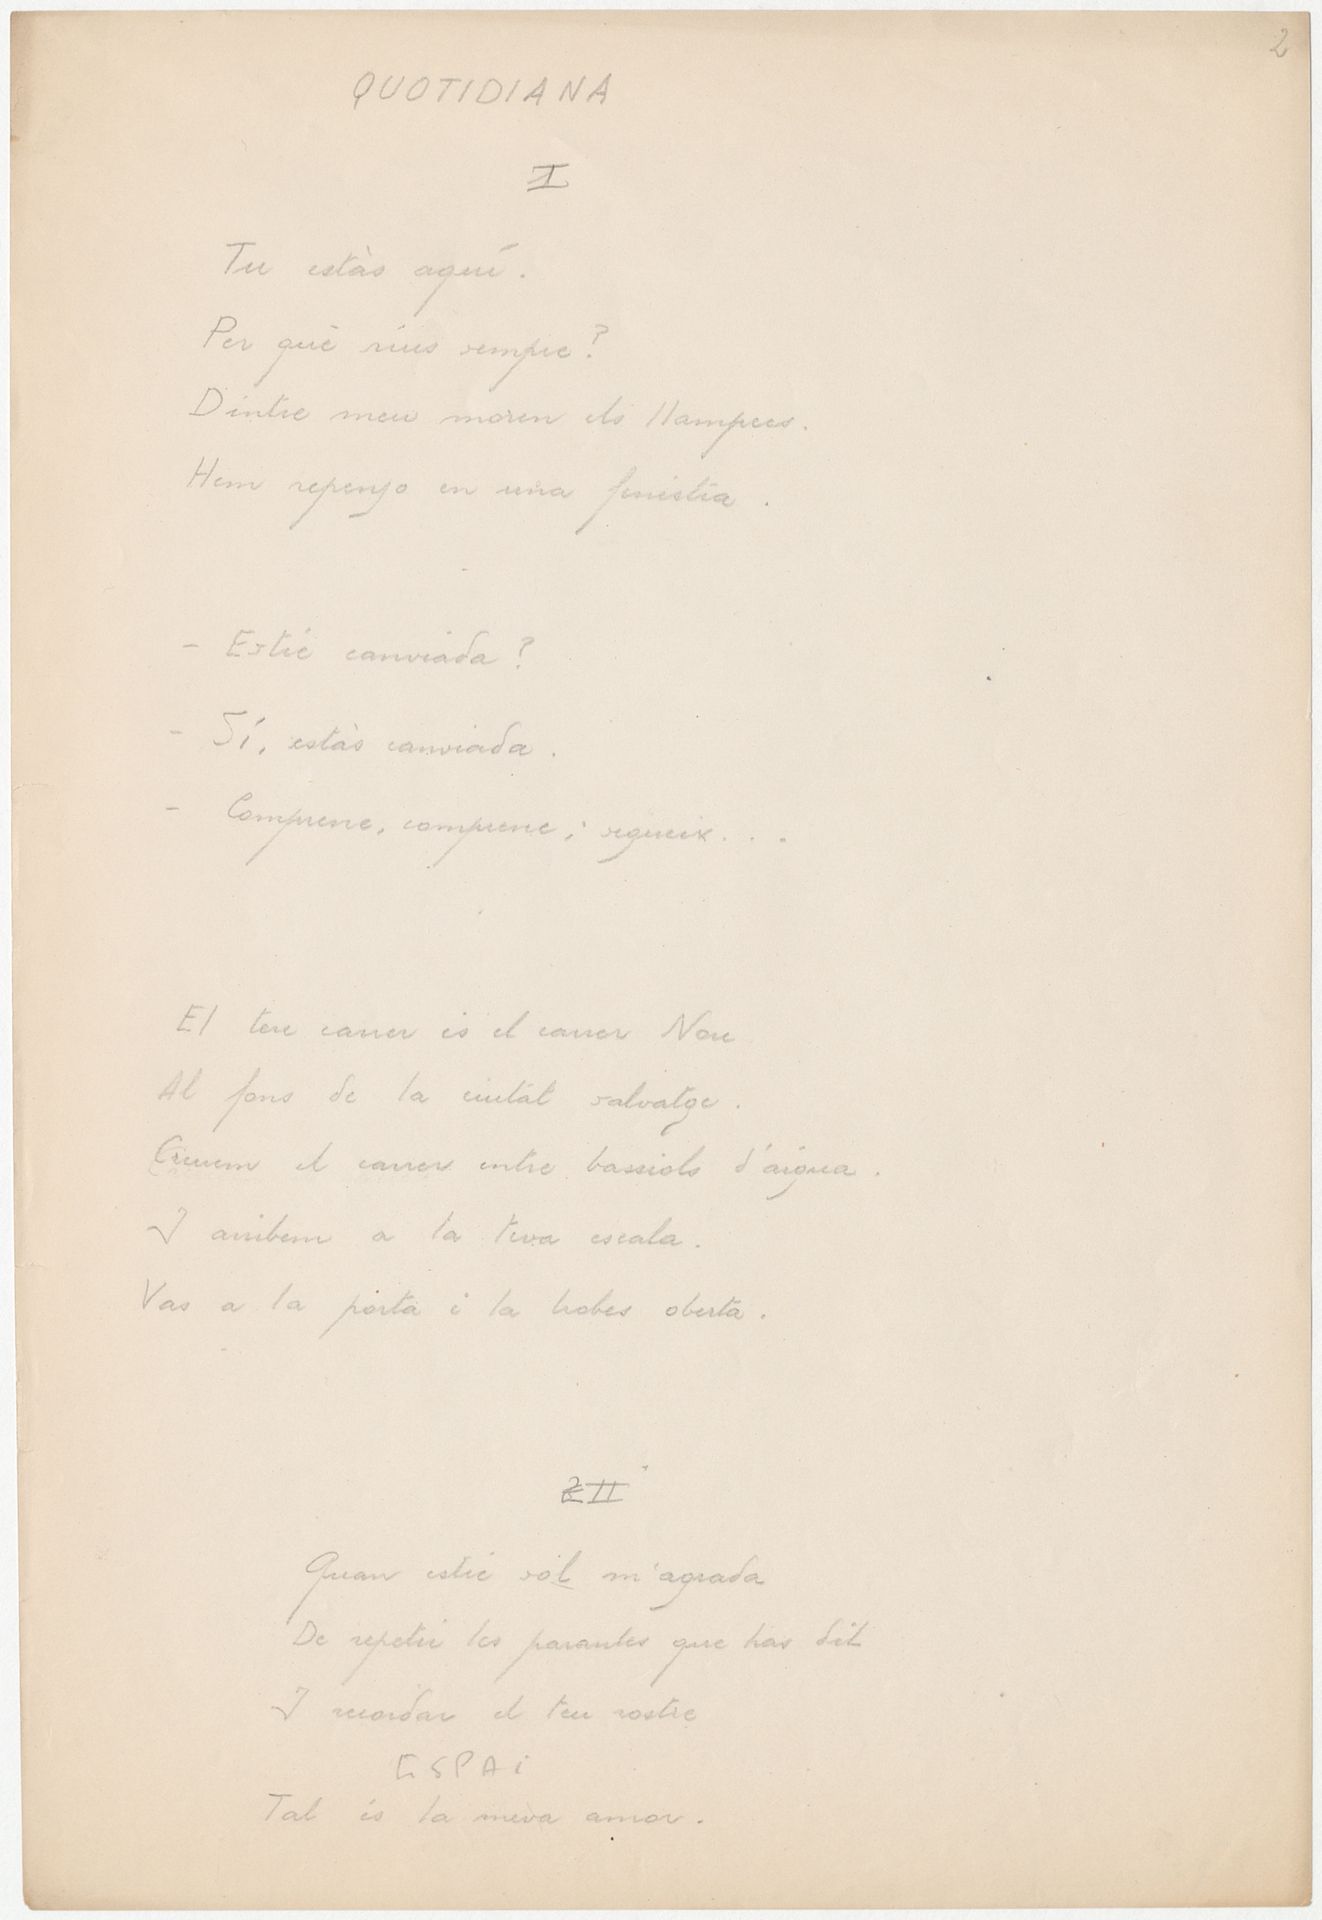 2
QUOTIDIANA
I
Tu estàs aquí.
Per què rius sempre?
Dintre meu moren els llampecs.
Hem repenjo en una finestra.
- Estic canviada?
- Sí, estàs canviada.
- Comprenc, comprenc; segueix...
El teu carrer és el carrer Nou
Al fons de la ciutat salvatge.
Creuem el carrer entre bassiols d'aigua.
I arribem a la teva escala.
Vas a la porta i la trobes oberta.
II
Quan estic sol m'agrada
De repetir les paraules que has dit
I recordar el teu rostre
ESPAi
Tal és la meva amor.